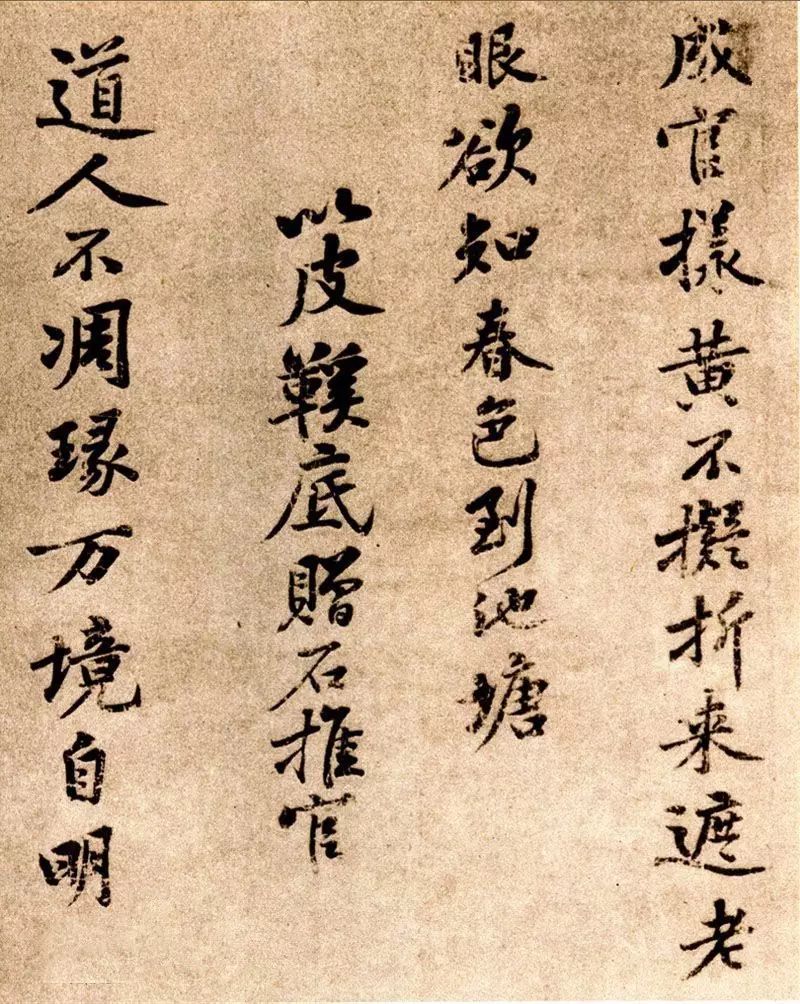 成官樣黄不擬折来遮老
眼欲知春色到池塘
以皮鞵底贈石推官
道人不凋琢万境自明